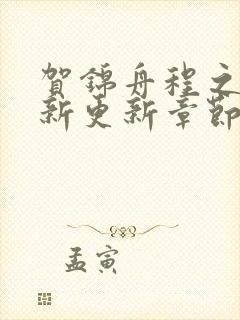 賀錦舟程之
新更新章節
孟寅